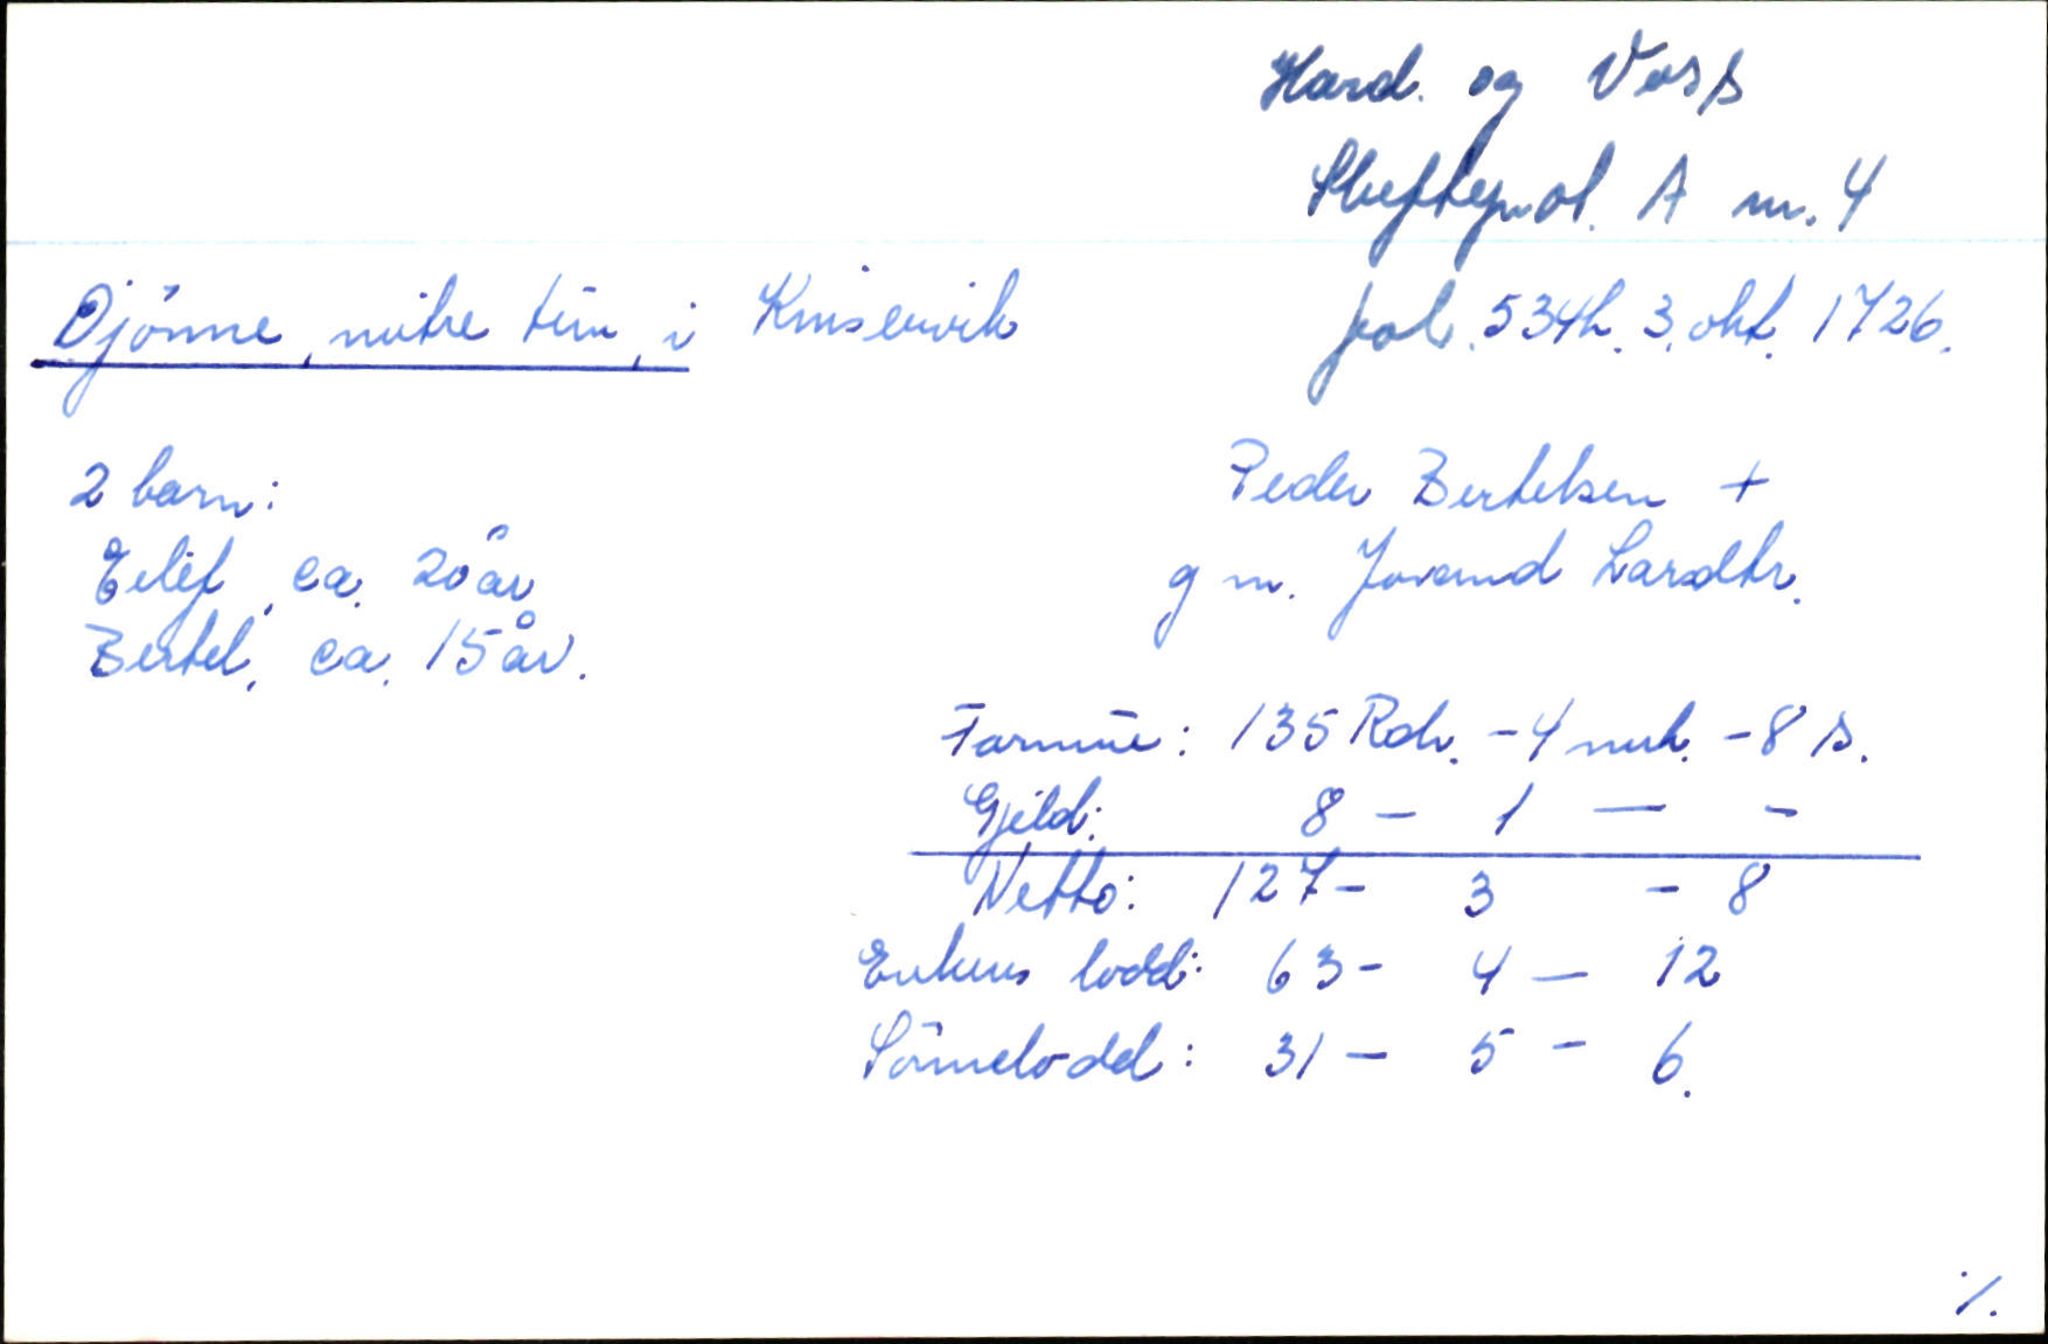 Hard. og Voss
Skifteprot. A nr. 4
Djönne, nitre tun, i Kinservik
fol. 534b. 3. okt. 1726.
2 barn:
Peder Bertelsen +
Eilif, ca. 20 år
g m. Jorand Larsdtr.
Bertel, ca. 15 år.
Formue: 135 Rdr. - 4 mrk. - 8 s.
Gjeld: 8 - 1 — -
Netto: 127 - 3 - 8
Enkens lodd: 63 - 4 — 12
Sönnelodd: 31 - 5 - 6.
./.